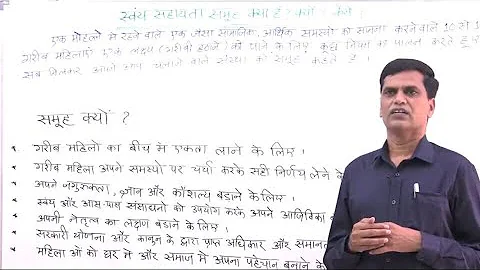 स्वंय सहायता समूह क्या है? क्यों? कैसे?
एक मोहल्ले में रहने वाले एक जैसा सामाजिक, आर्थिक समस्यों का सामना करने वाले 10 से
गरीब महिलाएँ एक लक्ष्य (गरीबी हटाने) को पाने के लिए कुछ नियमों का पालन करते हुए
सब मिलकर अपने आप चलाने वाले संस्था को समूह कहते है ।
समूह क्यों ?
• गरीब महिनों का बीच में एकता लाने के लिए ।
• गरीब महिला अपने समस्यो पर चर्चा करके सही निर्णय लेने के
• अपने जागुरुकता, ज्ञान और कौशल्य बडाने के लिए ।
• स्वंय और आस-पास संसाधनों को उपयोग करके अपने आजिविका
• अपनी नेतृत्व का लक्षण बडाने के लिए ।
• सरकारी योजना और कानून के द्वारा प्राप्त अधिकार और समानत
• महिला ओं को घर में और समाज में अपना पहेचान बनाने के